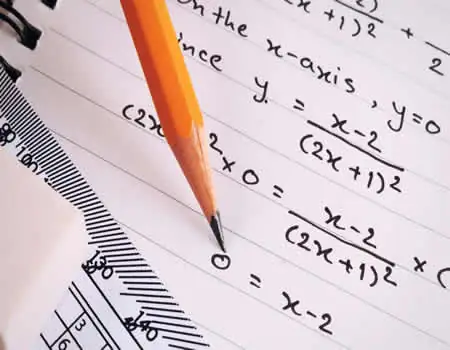 x+1)² + 2
on the x-axis, y=0
ince y = x-2 / (2x+1)²
(2x ² x 0 = x-2 / (2x+1)² x (
0 = x-2
130
140
3
6